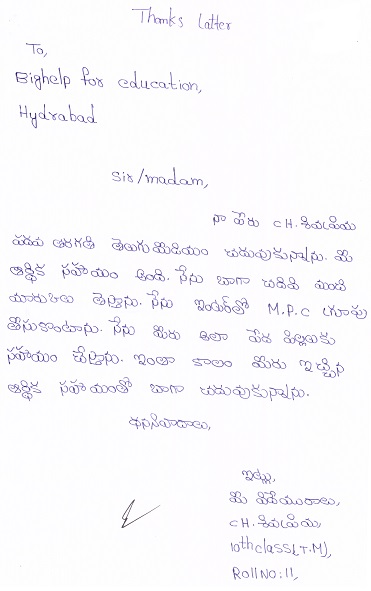 Thanks Latter
To,
Bighelp for education,
Hydrabad
Sir/madam,
నా పేరు CH.శివప్రియ
పదవ తరగతి తెలుగు మీడియం చదువుకున్నాను. మీ
ఆర్థిక సహయం అంది. నేను బాగా చదివి మంచి
మారుకులు తెస్తాను. నేను ఇంటర్‌లో M.P.C గ్రూపు
తీసుకొంటాను. నేను మీరు ఇలా పేద పిల్లలకు
సహాయం చేస్తాను. ఇంతా కాలం మీరు ఇచ్చిన
ఆర్థిక సహాయంతో బాగా చదువుకున్నాను.
ధనస్వాదాలు,
ఇట్లు,
మీ విదేయురాలు,
CH.శివప్రియ,
10th class(T.M),
Roll NO:11,